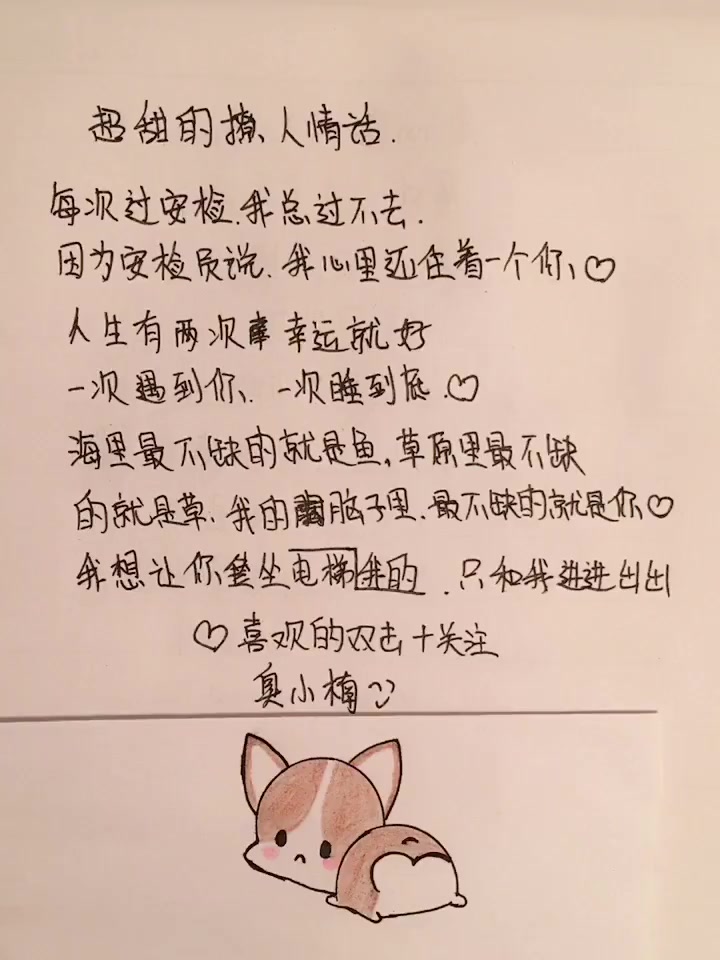 超甜的撩人情话.
每次过安检.我总过不去.
因为安检员说.我心里还住着一个你、♡
人生有两次幸运就好
一次遇到你、一次睡到底.♡
海里最不缺的就是鱼,草原里最不缺
的就是草.我的脑子里.最不缺的就是你♡
我想让你坐电梯我的.只和我进进出出
♡喜欢的双击+关注
臭小楠